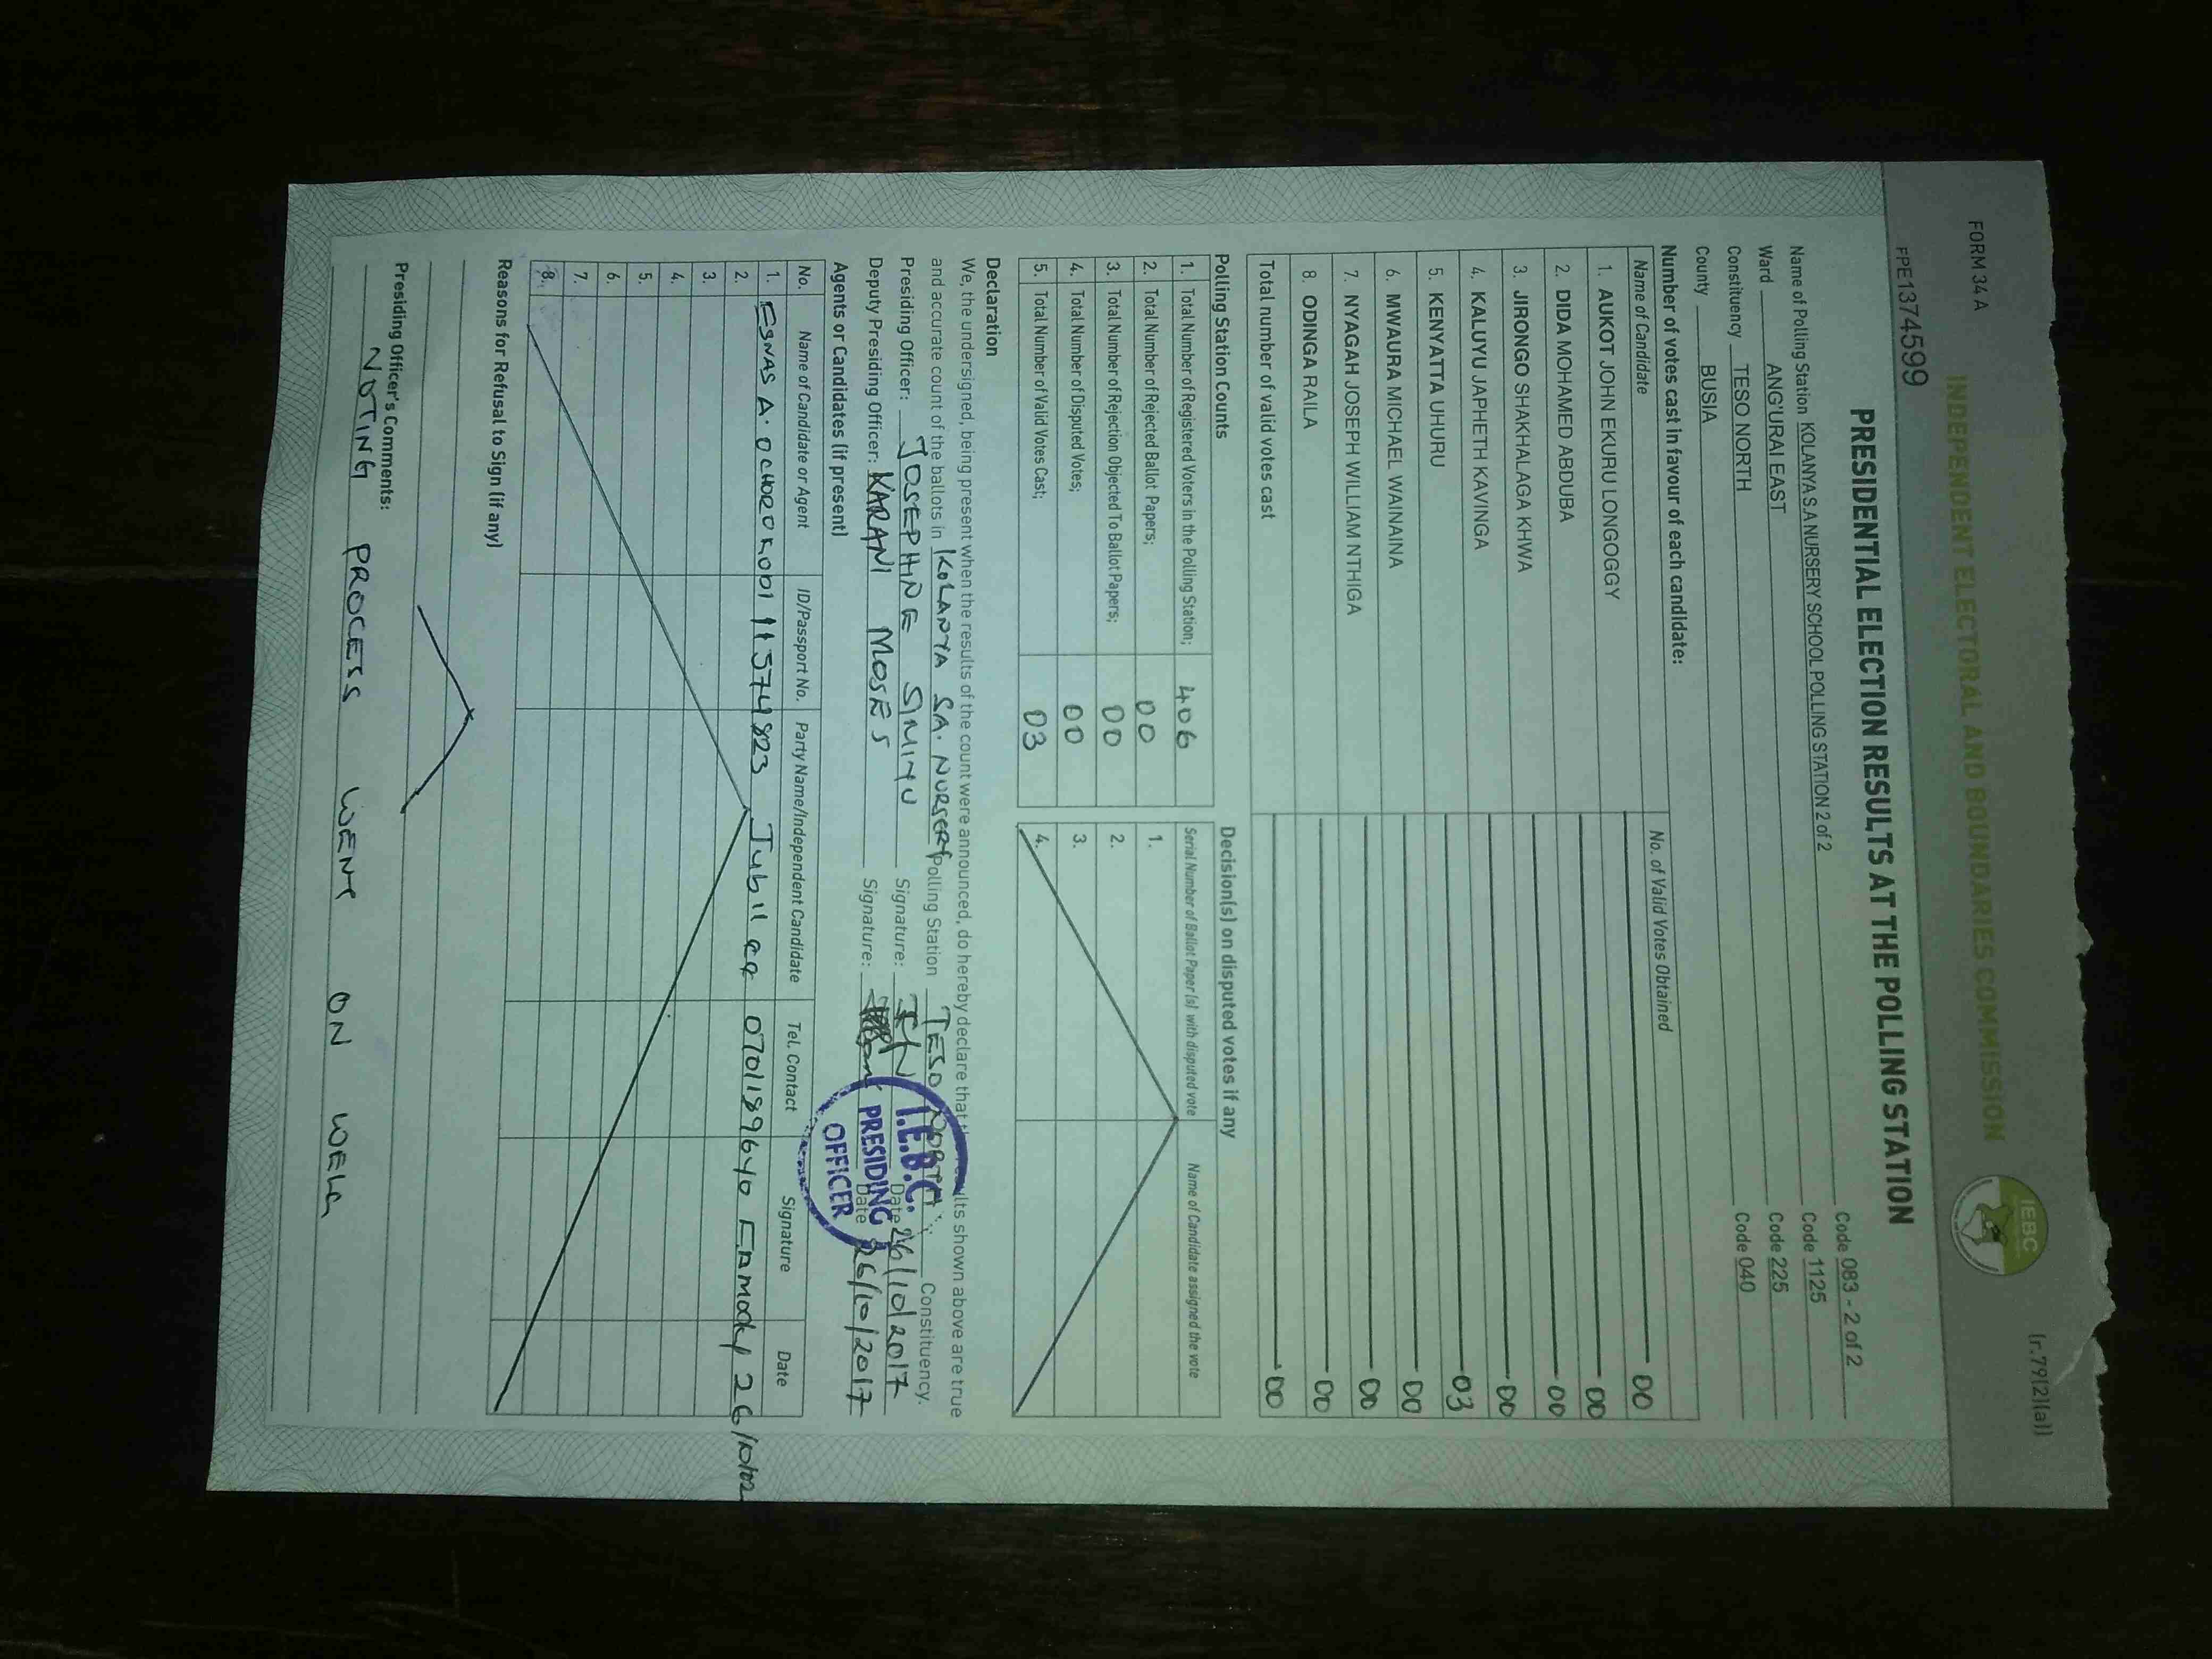 FORM 34 A
(r.79(2)(a))
INDEPENDENT ELECTORAL AND BOUNDARIES COMMISSION
IEBC
FPE1374599
PRESIDENTIAL ELECTION RESULTS AT THE POLLING STATION
Name of Polling Station KOLANYA S A NURSERY SCHOOL POLLING STATION 2 of 2 Code 083 - 2 of 2
Ward ANG'URAI EAST Code 1125
Constituency TESO NORTH Code 225
County BUSIA Code 040
Number of votes cast in favour of each candidate:
Name of Candidate No. of Valid Votes Obtained
1. AUKOT JOHN EKURU LONGOGGY 00
2. DIDA MOHAMED ABDUBA 00
3. JIRONGO SHAKHALAGA KHWA 00
4. KALUYU JAPHETH KAVINGA 00
5. KENYATTA UHURU 03
6. MWAURA MICHAEL WAINAINA 00
7. NYAGAH JOSEPH WILLIAM NTHIGA 00
8. ODINGA RAILA 00
Total number of valid votes cast 00
Polling Station Counts
1. Total Number of Registered Voters in the Polling Station; 406
2. Total Number of Rejected Ballot Papers; 00
3. Total Number of Rejection Objected To Ballot Papers; 00
4. Total Number of Disputed Votes; 00
5. Total Number of Valid Votes Cast; 03
Decision(s) on disputed votes if any
Serial Number of Ballot Paper (s) with disputed vote Name of Candidate assigned the vote
1.
2.
3.
4.
Declaration
We, the undersigned, being present when the results of the count were announced, do hereby declare that the results shown above are true
and accurate count of the ballots in KOLANYA SA. NURSERY Polling Station TESO NORTH Constituency.
Presiding Officer: JOSEPHINE SIMIYU Signature: Date 26/10/2017
Deputy Presiding Officer: KARANI MOSES Signature: Date 26/10/2017
I.E.B.C.
PRESIDING
OFFICER
Agents or Candidates (if present)
No. Name of Candidate or Agent ID/Passport No. Party Name/Independent Candidate Tel. Contact Signature Date
1. A. 11574823 Jubilee 0701189640
2.
3.
4.
5.
6.
7.
8.
Reasons for Refusal to Sign (if any)
Presiding Officer's Comments:
NOTING PROCESS WENT ON WELL